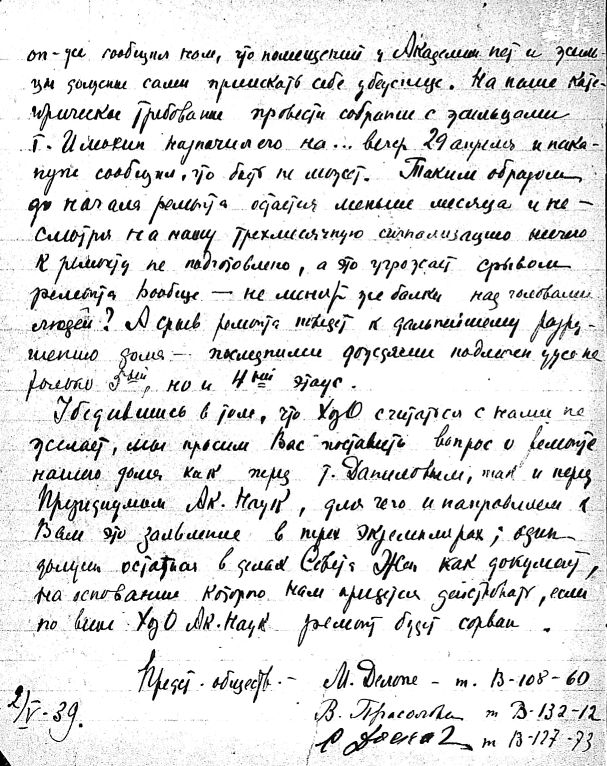 он-же сообщил нам, что помещений у Академии нет и жиль-
цы должны сами приискать себе убежище. На наше кате-
горическое требование провести собрание с жильцами
т. Имокин назначил его на... вечер 29 апреля и нака-
нуне сообщил, что быть не может. Таким образом
до начала ремонта остается меньше месяца и не-
смотря на нашу трехмесячную сигнализацию ничего
к ремонту не подготовлено, а это угрожает срывом
ремонта вообще — не менять же балки над головами
людей? А срыв ремонта поведет к дальнейшему разру-
шению дома — последними дождями подмочен уже не
только 5ый, но и 4ый этаж.
Убедившись в том, что ХозО считаться с нами не
желает, мы просим Вас поставить вопрос о ремонте
нашего дома как перед т. Даниловым, так и перед
Президиумом Ак. Наук, для чего и направляем к
Вам это заявление в трех экземплярах; один
должен остаться в делах Совета Жен как документ,
на основании которого нам придется действовать, если
по вине ХозО Ак. Наук ремонт будет сорван.
Предст. обществ. — М. Делоне — т. В-108-60
В. Прасолова т В-132-12
т В-127-73
2/V-39.